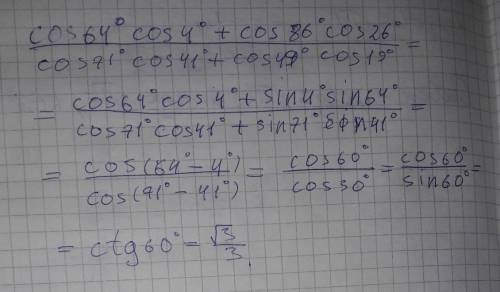 cos64° cos4° + cos86° cos26° / cos71° cos41° + cos49° cos19° =
= cos64° cos4° + sin4° sin64° / cos71° cos41° + sin71° sin41° =
= cos(64° - 4°) / cos(71° - 41°) = cos60° / cos30° = cos60° / sin60° =
= ctg60° = √3 / 3